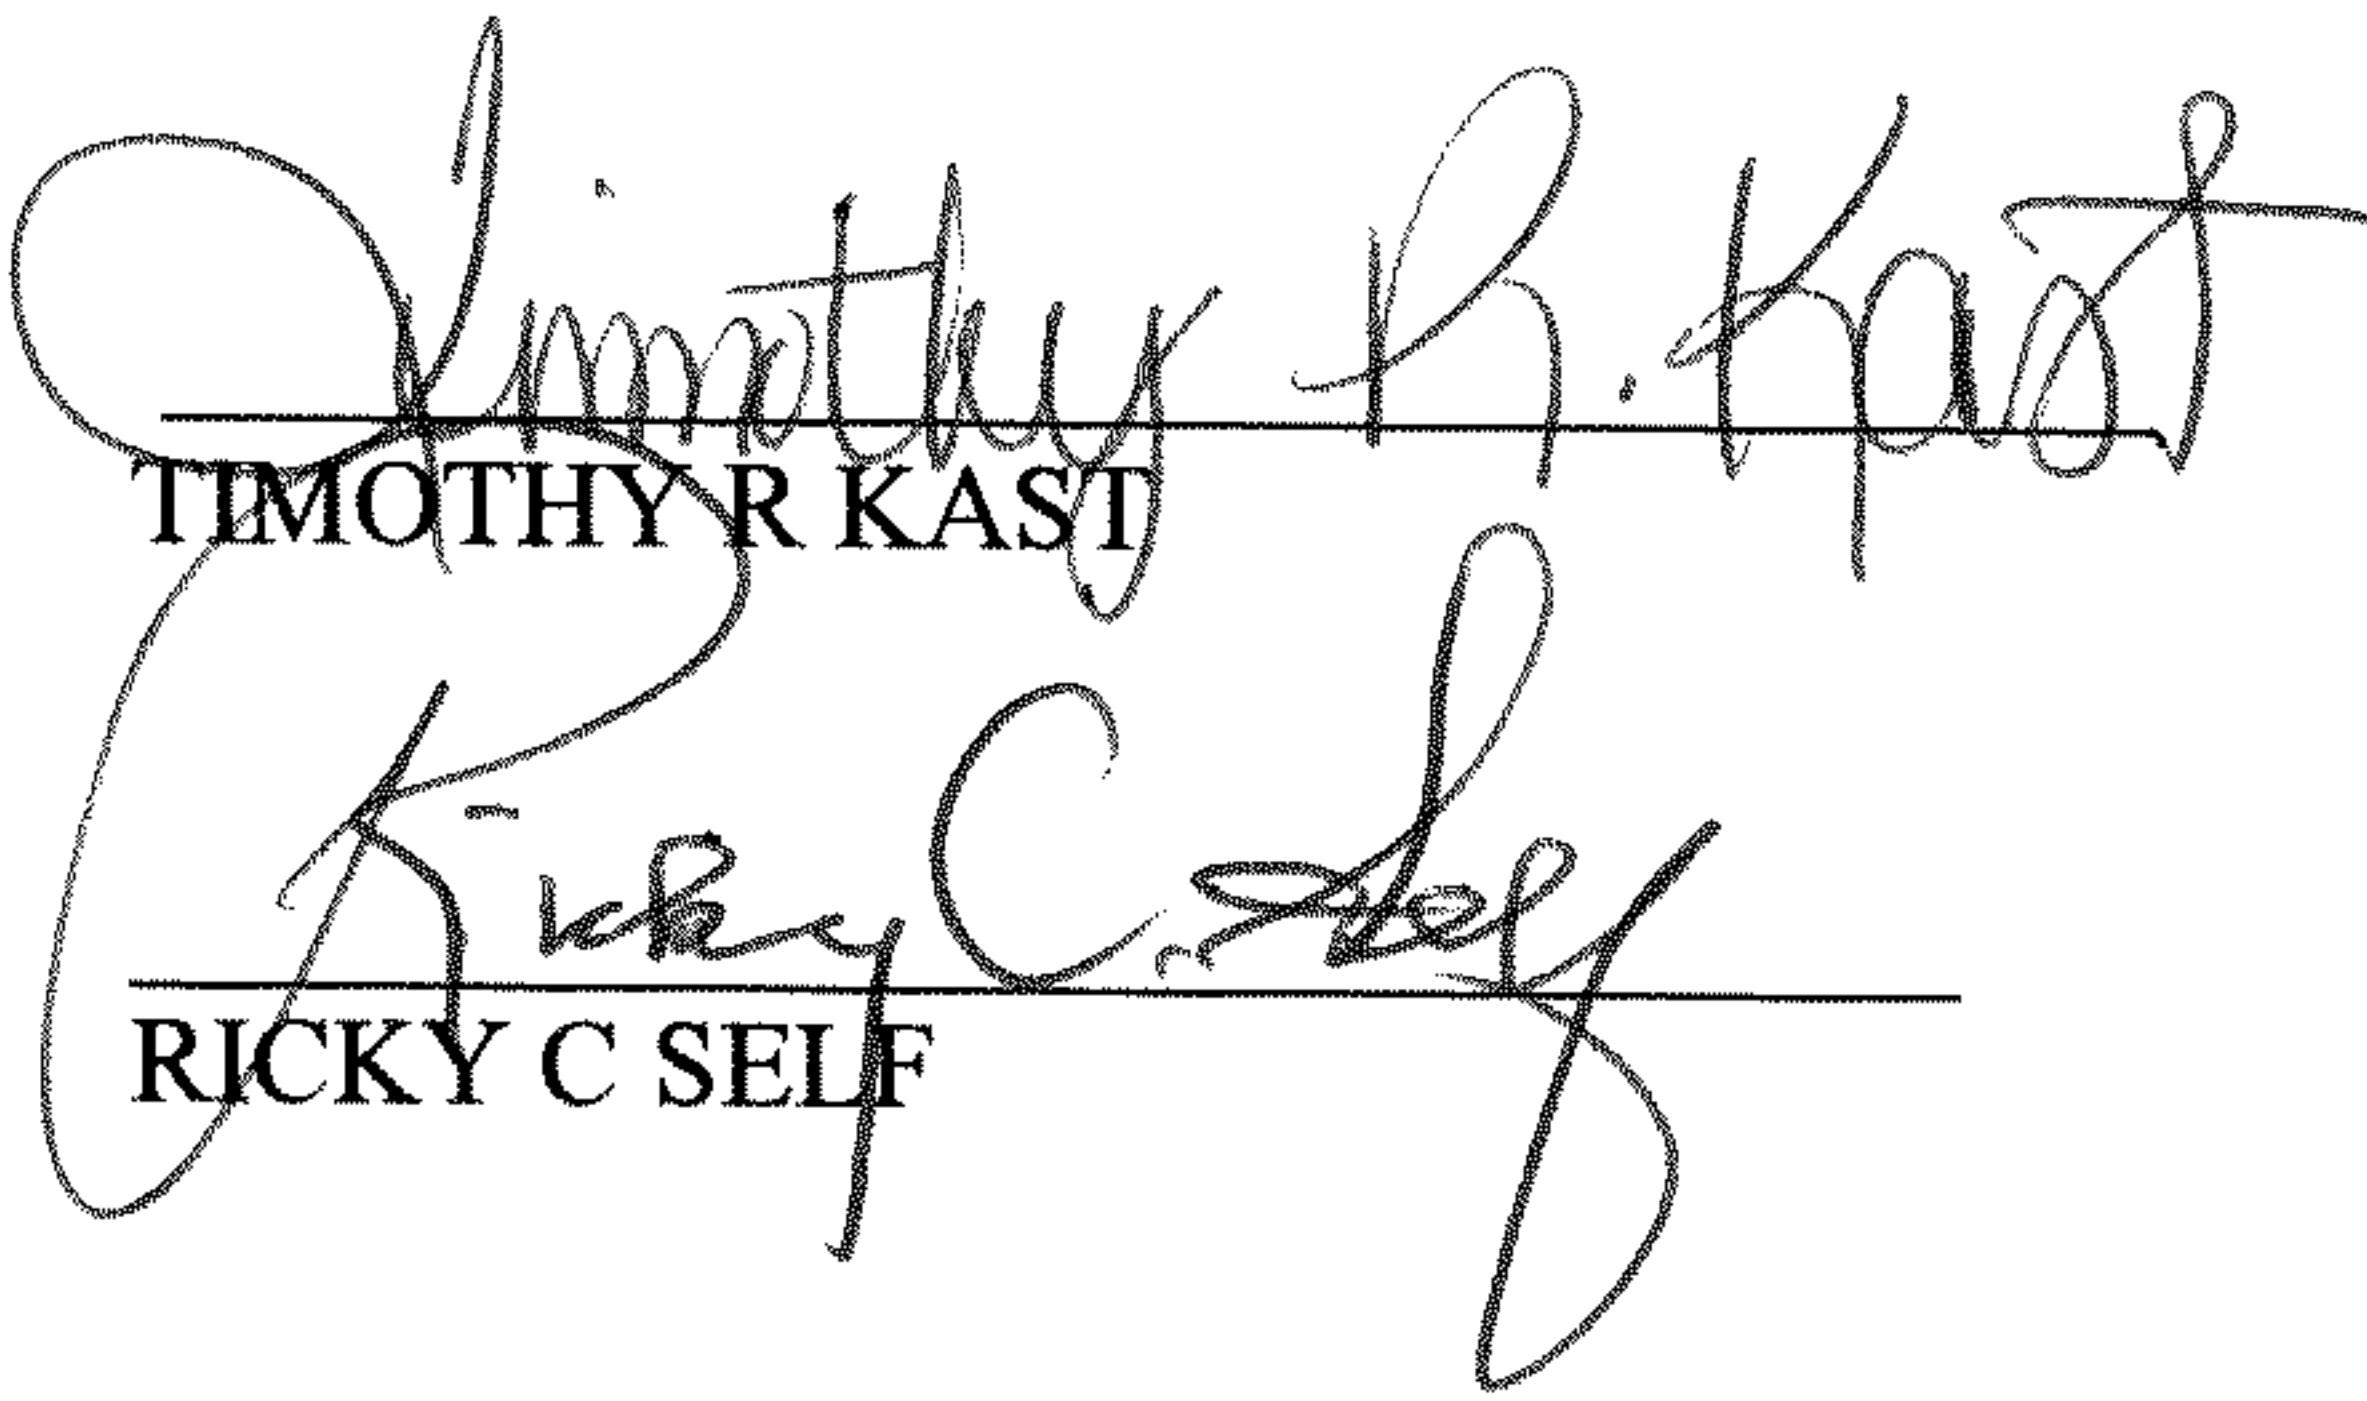 Timothy R. Kast
TIMOTHY R KAST
Ricky C. Self
RICKY C SELF